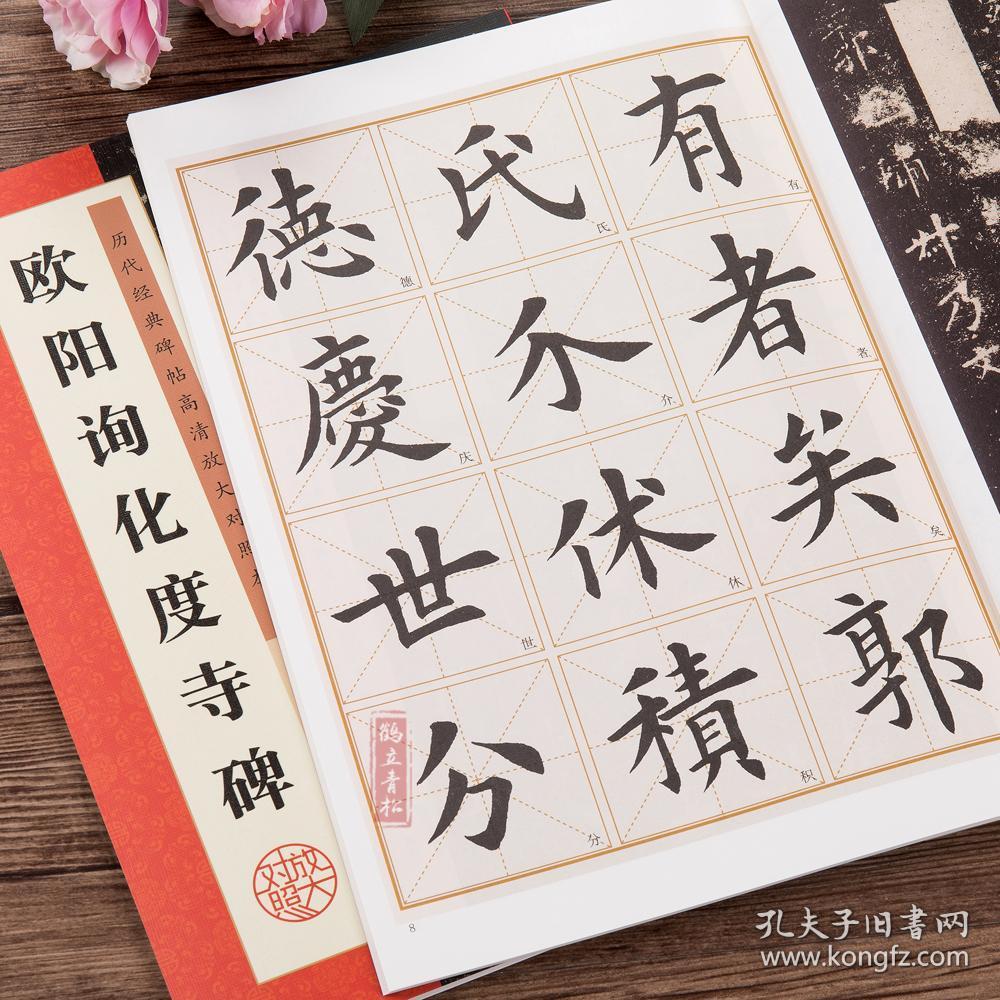 欧阳询化度寺碑
历代经典碑帖高清放大对照本
放大对照
有 有
者 者
矣 矣
郭
氏 氏
介 介
休 休
積 积
德 德
慶 庆
世 世
分 分
8
鹤立青松
林乃文
孔夫子旧书网
www.kongfz.com